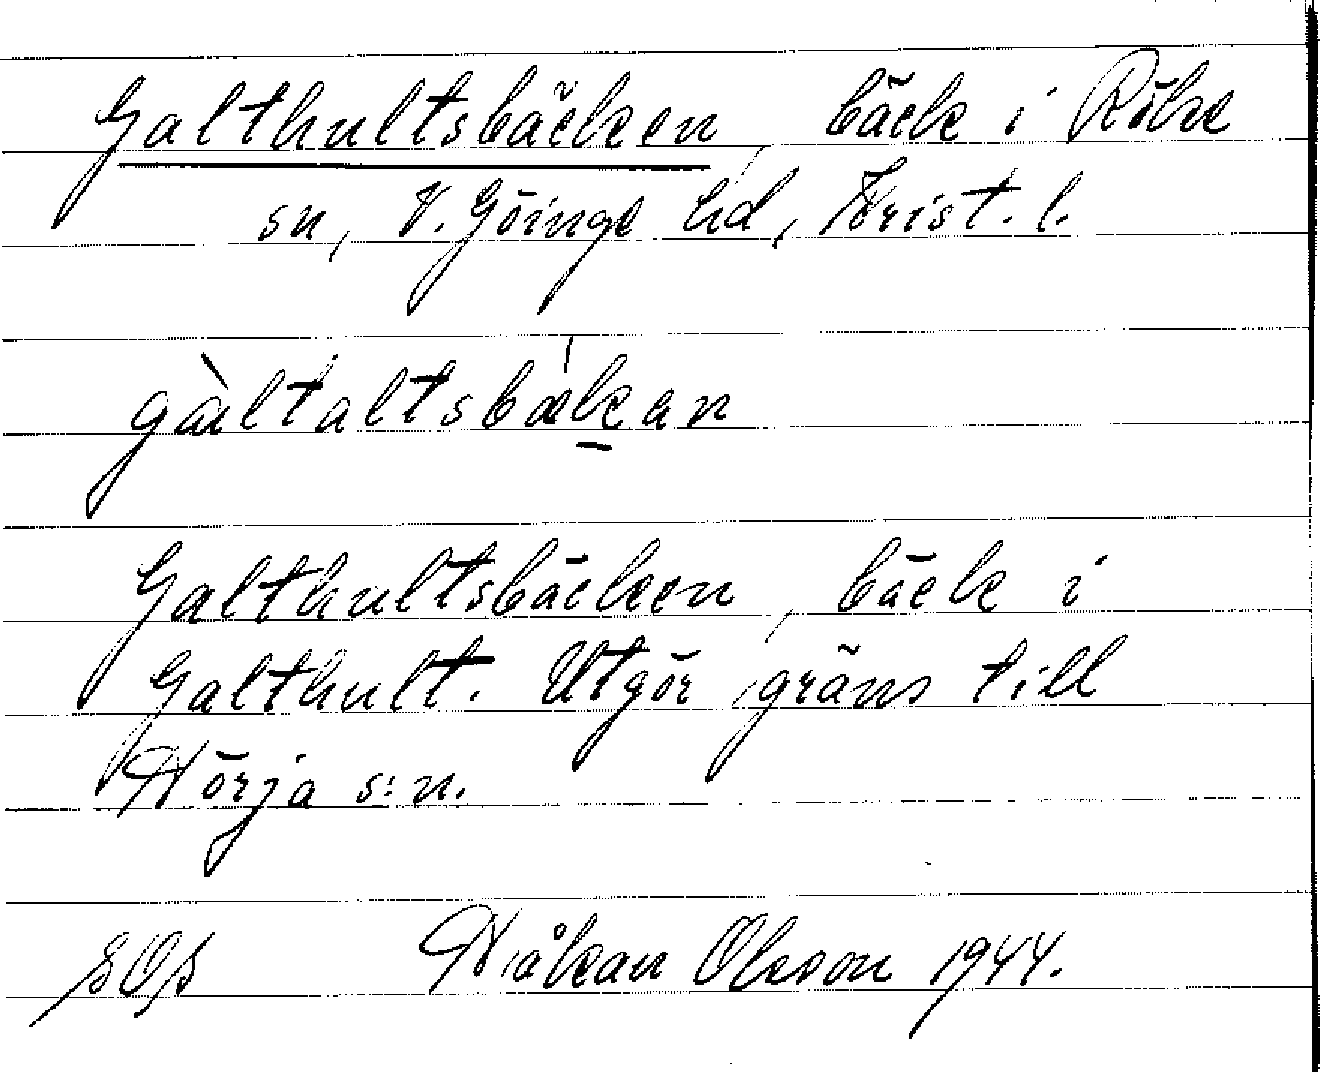 Galthultsbäcken, bäck i Röke
sn, V. Göinge hd, Krist. l.
gàltaltsbækan
Galthultsbäcken, bäck i
Galthult. Utgör gräns till
Hörja s:n.
SOp Håkan Olsson 1944.